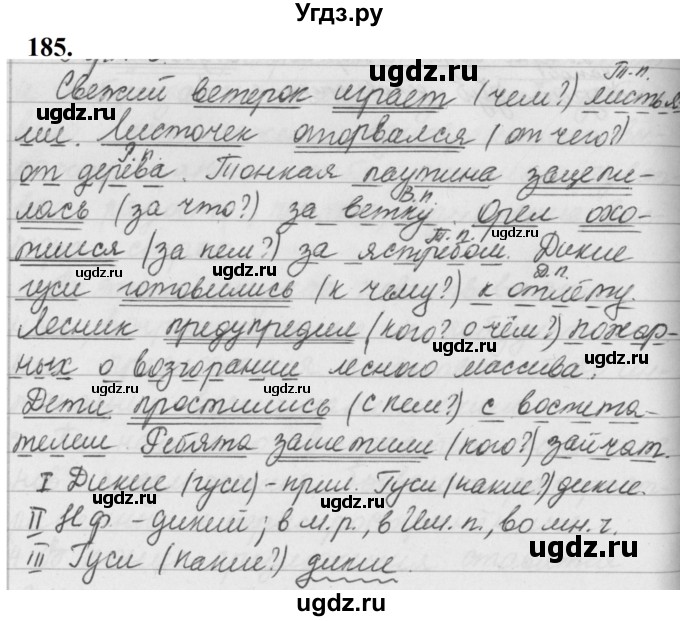 Угдз.ру
185.
Свежий ветерок играет (чем?) листья- Т.п.
ми. Листочек оторвался (от чего?)
от дерева. Р.п. Тонкая паутина зацепи-
лась (за что?) за ветку. В.п. Орёл охо-
тился (за кем?) за ястребом. Т.п. Дикие
гуси готовились (к чему?) к отлёту. Д.п.
Лесник предупредил (кого? о чём?) пожар-
ных о возгорании лесного массива.
Дети простились (с кем?) с воспита-
телем. Ребята заметили (кого?) зайчат.
I Дикие (гуси) - прил. Гуси (какие?) дикие.
II Н.ф. - дикий; в м.р., в Им.п., во мн.ч.
III Гуси (какие?) дикие.
ugdz.ru